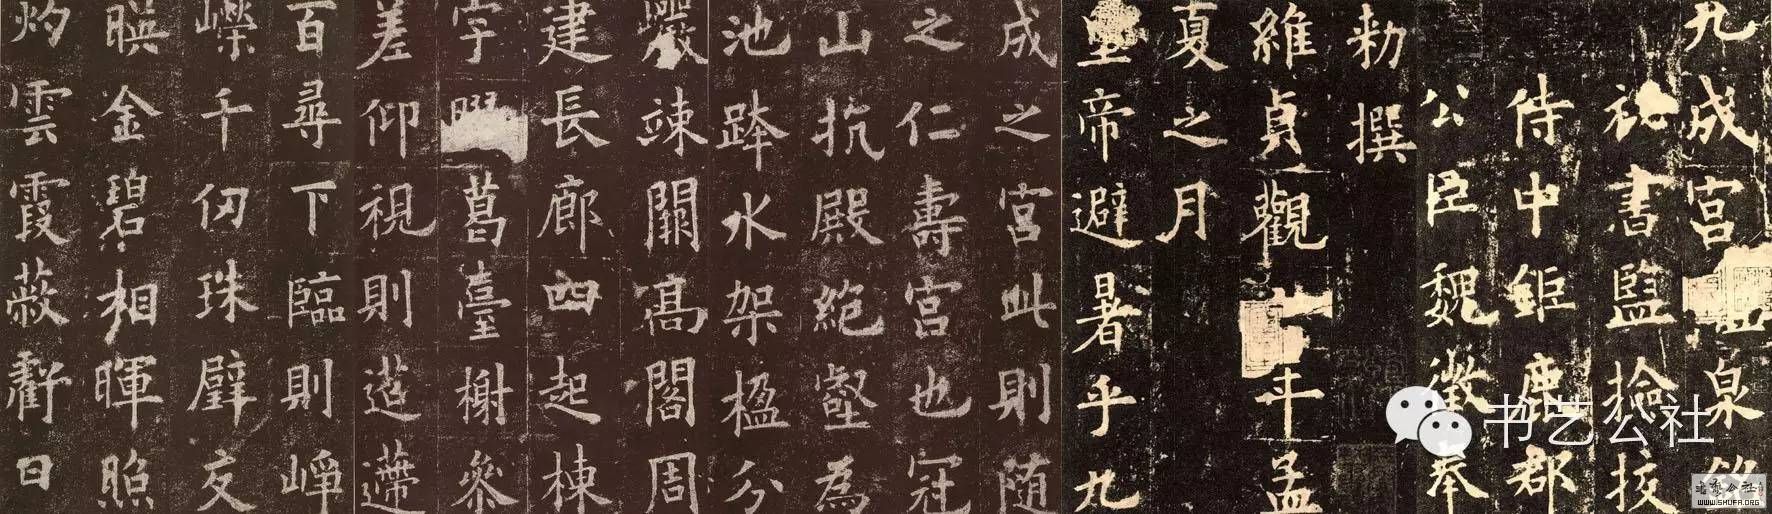 九成宮泉銘
秘書監撿挍
侍中鉅鹿郡
公臣魏徵奉
勅撰
維貞觀年孟
夏之月
皇帝避暑乎九
成之宮此則随
之仁壽宮也冠
山抗殿絕壑為
池跨水架楹分
巖竦闕髙閣周
建長廊四起棟
宇葛臺榭參
差仰視則迢遰
百尋下臨則崢
嶸千仞珠璧交
暎金碧相暉照
灼雲霞蔽虧日
书艺公社
书艺公社
WWW.SHUFA.ORG